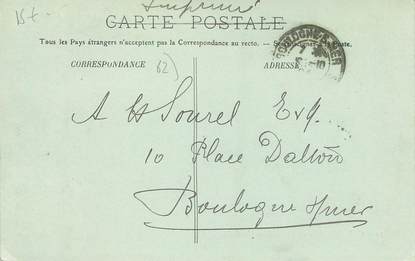 15 f
Imprimé
CARTE POSTALE
Tous les Pays étrangers n'acceptent pas la Correspondance au recto. —
CORRESPONDANCE
62)
ADRESSE
BOULOGNE S MER
A H Sourel Esq.
10 Place Dalton
Boulogne s/mer